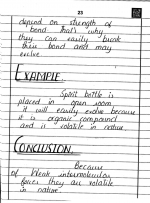 23
depend on strength of
bond that's why
they can easily break
their bond and may
evolve
EXAMPLE.
Spirit bottle is
placed in open room
it will easily evolve because
it is organic compound
and is volatile in nature.
CONCLUSION.
Because
of Weak intermolecular
forces they are volatile
in nature.